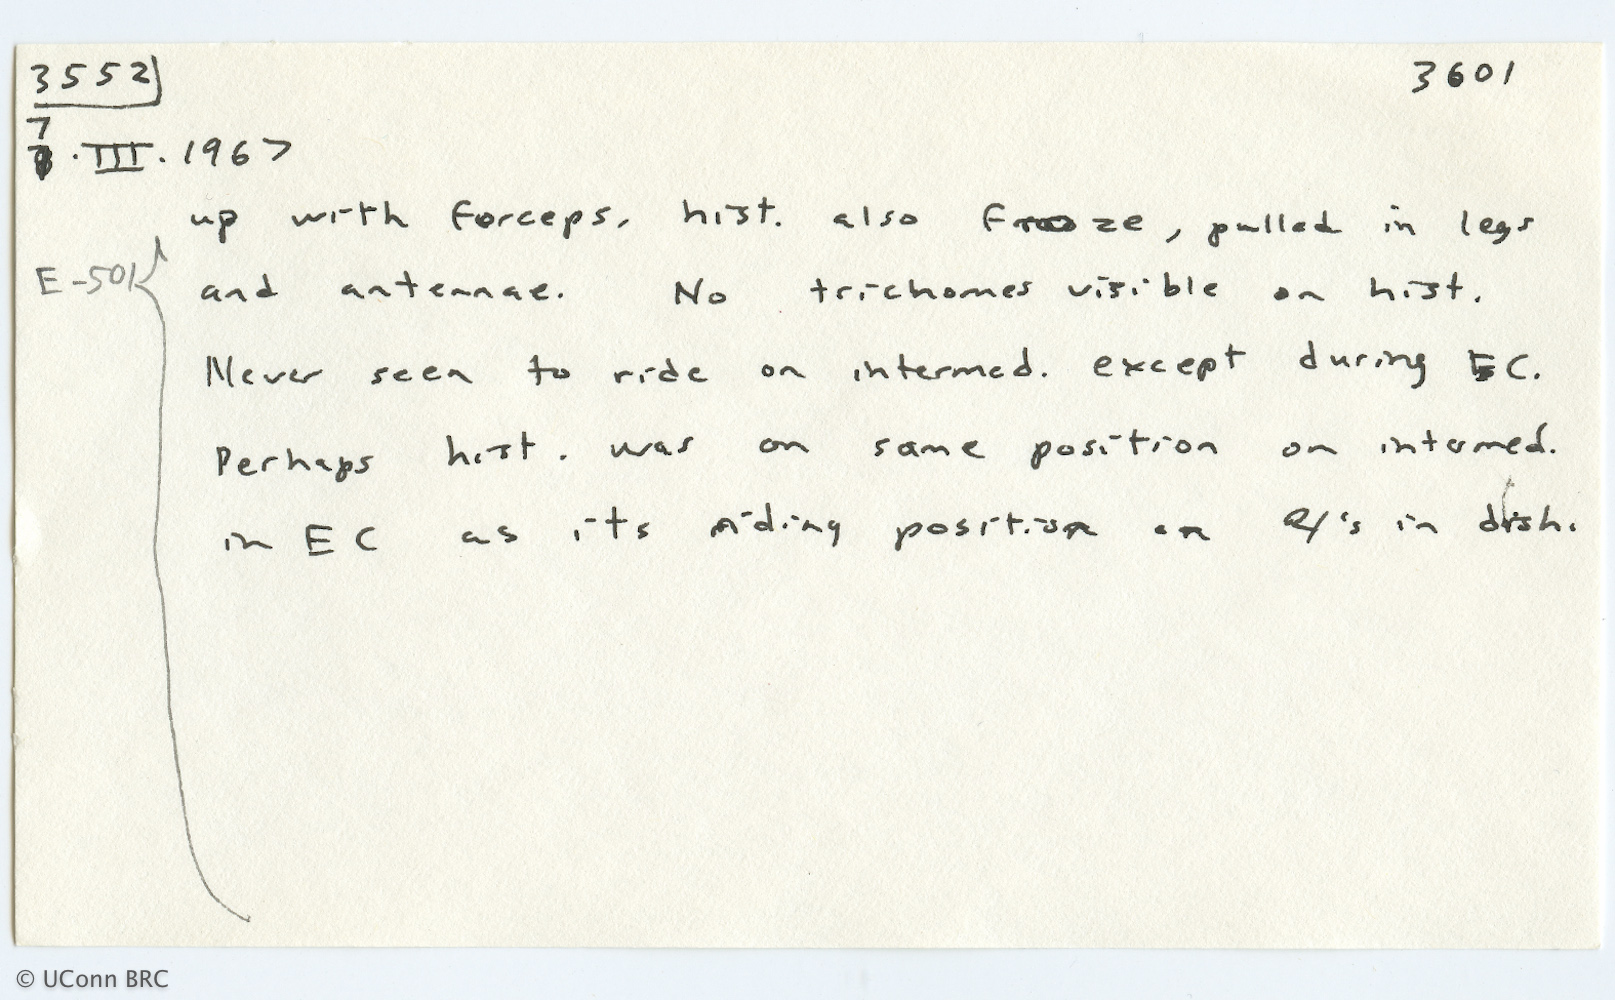 3552
3601
7
.III.1967
up with forceps. hist. also froze, pulled in legs
E-501
and antennae. No trichomes visible on hist.
Never seen to ride on intermed. except during EC.
Perhaps hist. was on same position on intermed.
in EC as its riding position on 's in dish.
© UConn BRC